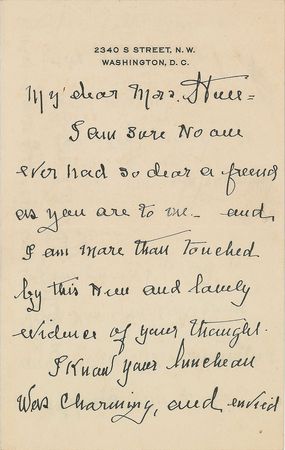 2340 S STREET, N. W.
WASHINGTON, D. C.
My dear Mrs. Hull =
I am sure No one
ever had so dear a friend
as you are to me - and
I am more than touched
by this New and lovely
evidence of your thought.
I Know your luncheon
Was Charming, and envied